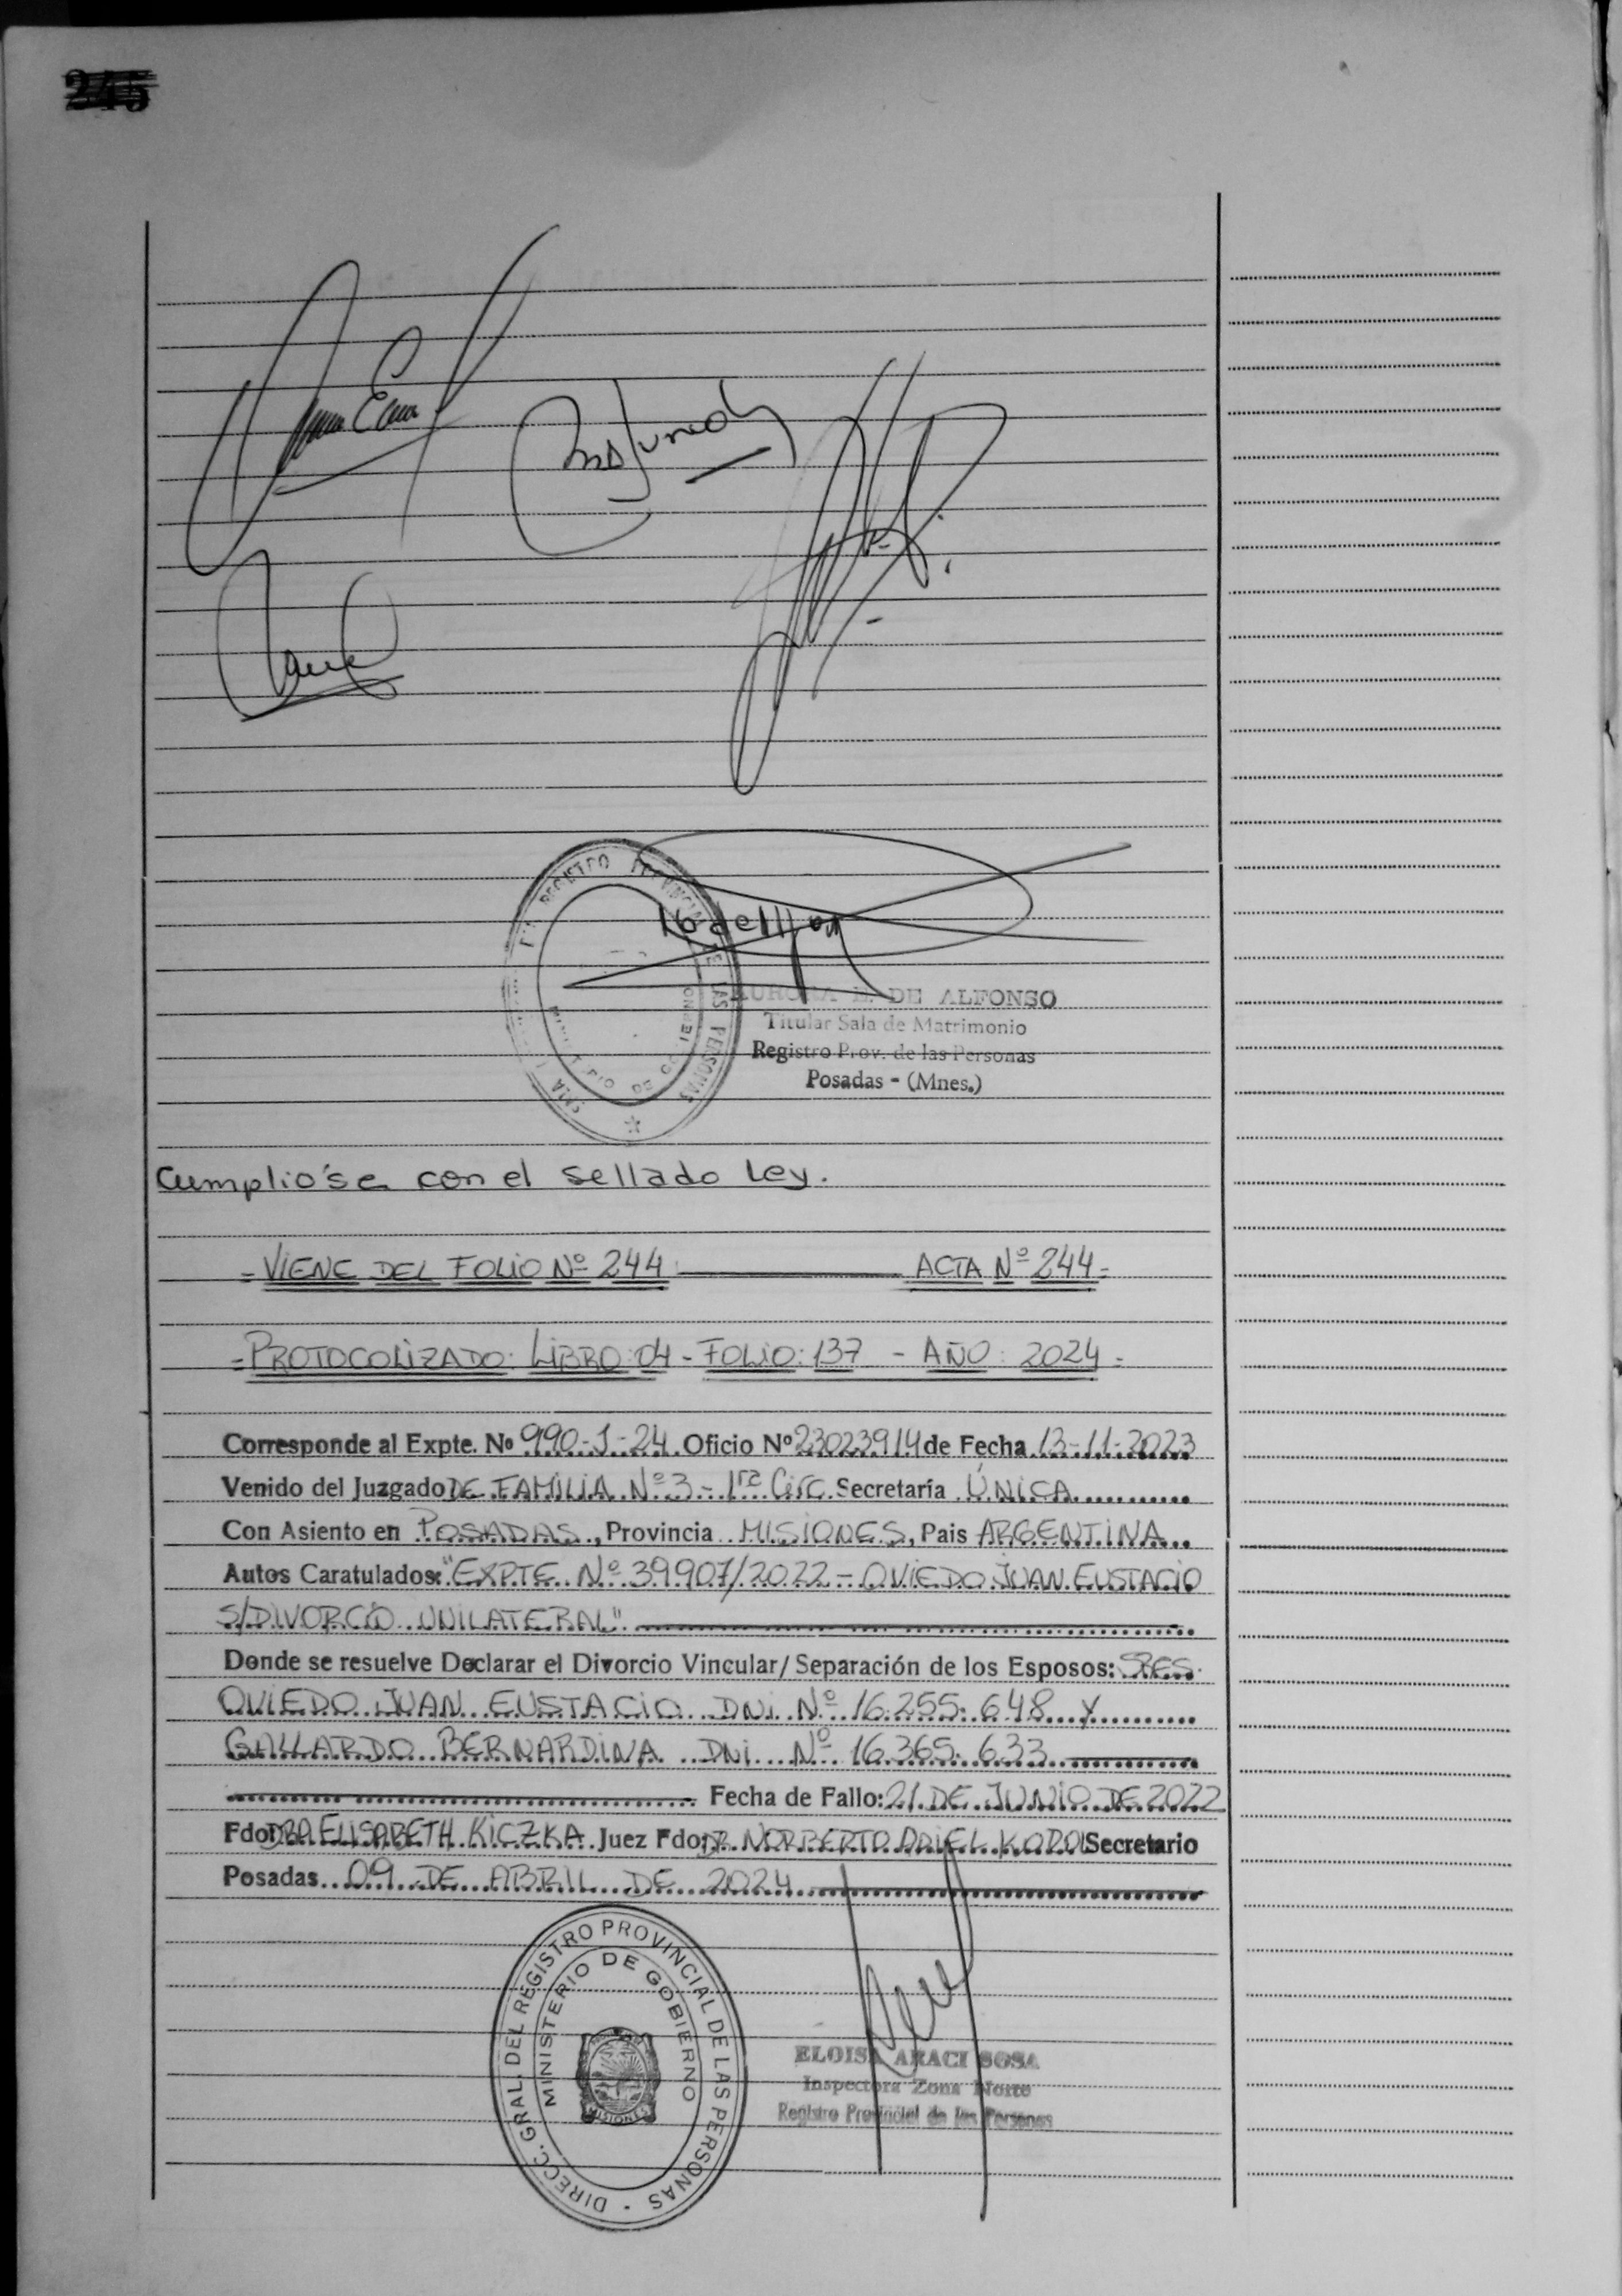 245
AURORA E. DE ALFONSO
Titular Sala de Matrimonio
Registro Prov. de las Personas
Posadas - (Mnes.)
Cumplióse con el sellado Ley.
= VIENE DEL FOLIO Nº 244 ACTA Nº 244 =
= PROTOCOLIZADO: LIBRO: 04 - FOLIO: 137 - AÑO: 2024 =
Corresponde al Expte. Nº 990-J-24 Oficio Nº 23023914 de Fecha 13-11-2023
Venido del Juzgado DE FAMILIA Nº 3 - 1ra Circ. Secretaría ÚNICA
Con Asiento en POSADAS, Provincia MISIONES, Pais ARGENTINA
Autos Caratulados: "EXPTE Nº 39907/2022 - OVIEDO JUAN EUSTACIO
S/DIVORCIO UNILATERAL"
Donde se resuelve Declarar el Divorcio Vincular/Separación de los Esposos: SRES.
OVIEDO JUAN EUSTACIO DNI Nº 16.255.648 y
GALLARDO BERNARDINA DNI Nº 16.365.633
Fecha de Fallo: 21 DE JUNIO DE 2022
Fdo: DRA ELISABETH KICZKA Juez Fdo: DR. NORBERTO ARIEL KOROL Secretario
Posadas 09 DE ABRIL DE 2024
DIRECC. GRAL. DEL REGISTRO PROVINCIAL DE LAS PERSONAS
MINISTERIO DE GOBIERNO
MISIONES
ELOISA ARACI SOSA
Inspectora Zona Norte
Registro Provincial de las Personas